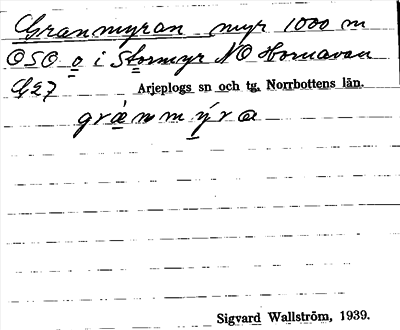 Granmyran myr 1000 m
OSO o i Stormyr NO Hornavan
GE7 Arjeplogs sn och tg, Norrbottens län.
grànmmýra
Sigvard Wallström, 1939.